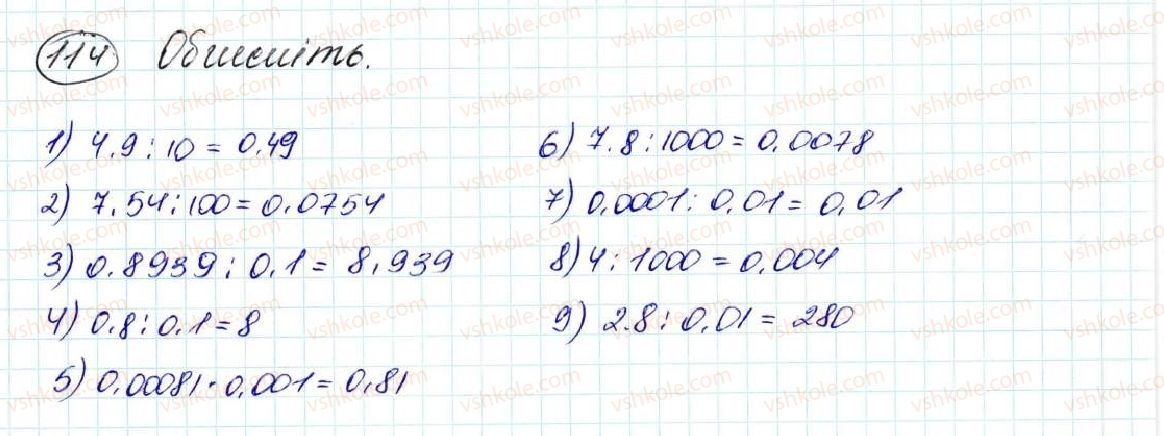 114 Обчисліть.
1) 4.9 : 10 = 0.49
2) 7.54 : 100 = 0.0754
3) 0.8939 : 0.1 = 8,939
4) 0.8 : 0.1 = 8
5) 0.00081 · 0,001 = 0,81
6) 7.8 : 1000 = 0.0078
7) 0.0001 : 0.01 = 0,01
8) 4 : 1000 = 0.004
9) 2.8 : 0.01 = 280
vshkole.com